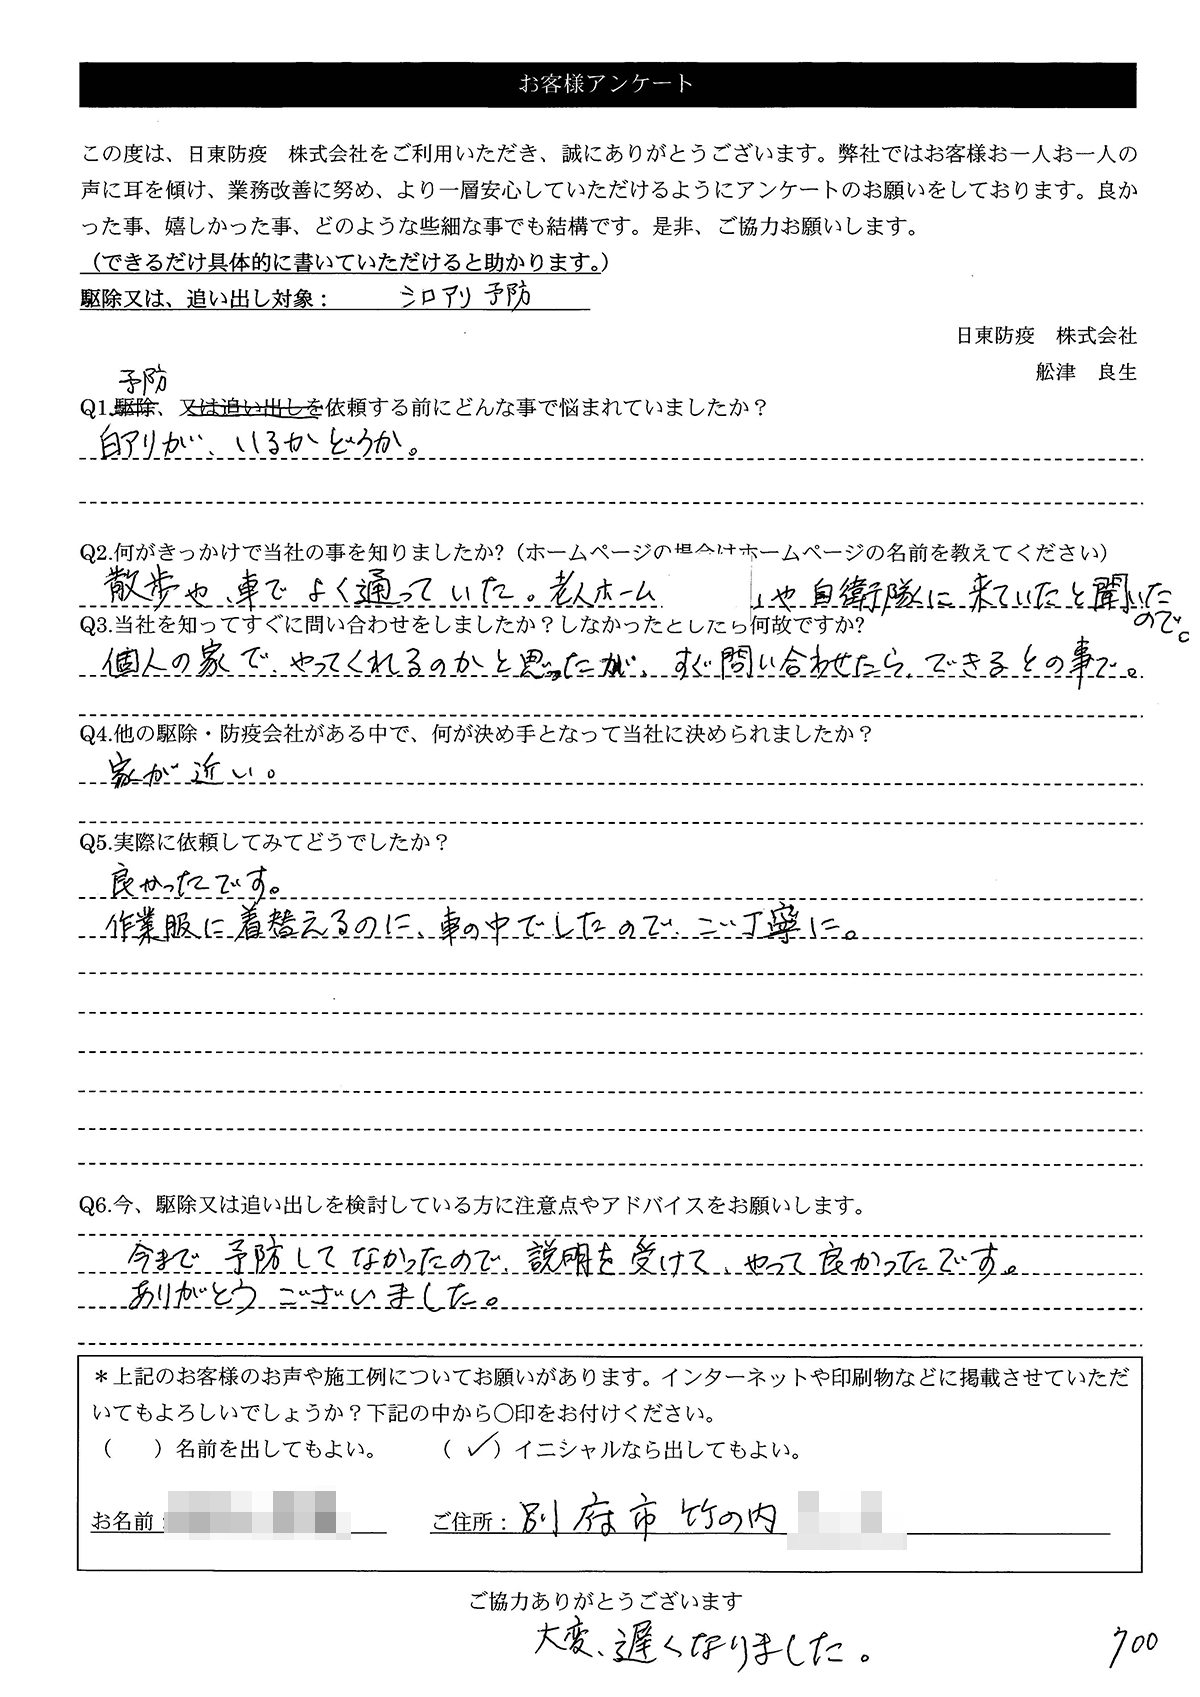 お客様アンケート
この度は、日東防疫　株式会社をご利用いただき、誠にありがとうございます。弊社ではお客様お一人お一人の
声に耳を傾け、業務改善に努め、より一層安心していただけるようにアンケートのお願いをしております。良か
った事、嬉しかった事、どのような些細な事でも結構です。是非、ご協力お願いします。
（できるだけ具体的に書いていただけると助かります。）
駆除又は、追い出し対象： シロアリ予防
日東防疫　株式会社
舩津　良生
予防
Q1.駆除、又は追い出しを依頼する前にどんな事で悩まれていましたか？
白アリが、いるかどうか。
Q2.何がきっかけで当社の事を知りましたか?（ホームページの場合はホームページの名前を教えてください）
散歩や、車でよく通っていた。老人ホーム や自衛隊に来ていたと聞いた
ので。
Q3.当社を知ってすぐに問い合わせをしましたか？しなかったとしたら何故ですか?
個人の家で、やってくれるのかと思ったが、すぐ問い合わせたら、できるとの事で。
Q4.他の駆除・防疫会社がある中で、何が決め手となって当社に決められましたか？
家が近い。
Q5.実際に依頼してみてどうでしたか？
良かったです。
作業服に着替えるのに、車の中でしたので、ご丁寧に。
Q6.今、駆除又は追い出しを検討している方に注意点やアドバイスをお願いします。
今まで予防してなかったので、説明を受けて、やって良かったです。
ありがとうございました。
＊上記のお客様のお声や施工例についてお願いがあります。インターネットや印刷物などに掲載させていただ
いてもよろしいでしょうか？下記の中から〇印をお付けください。
（　　）名前を出してもよい。　　（ ✓ ）イニシャルなら出してもよい。
お名前： ご住所： 別府市竹の内
ご協力ありがとうございます
大変、遅くなりました。
700